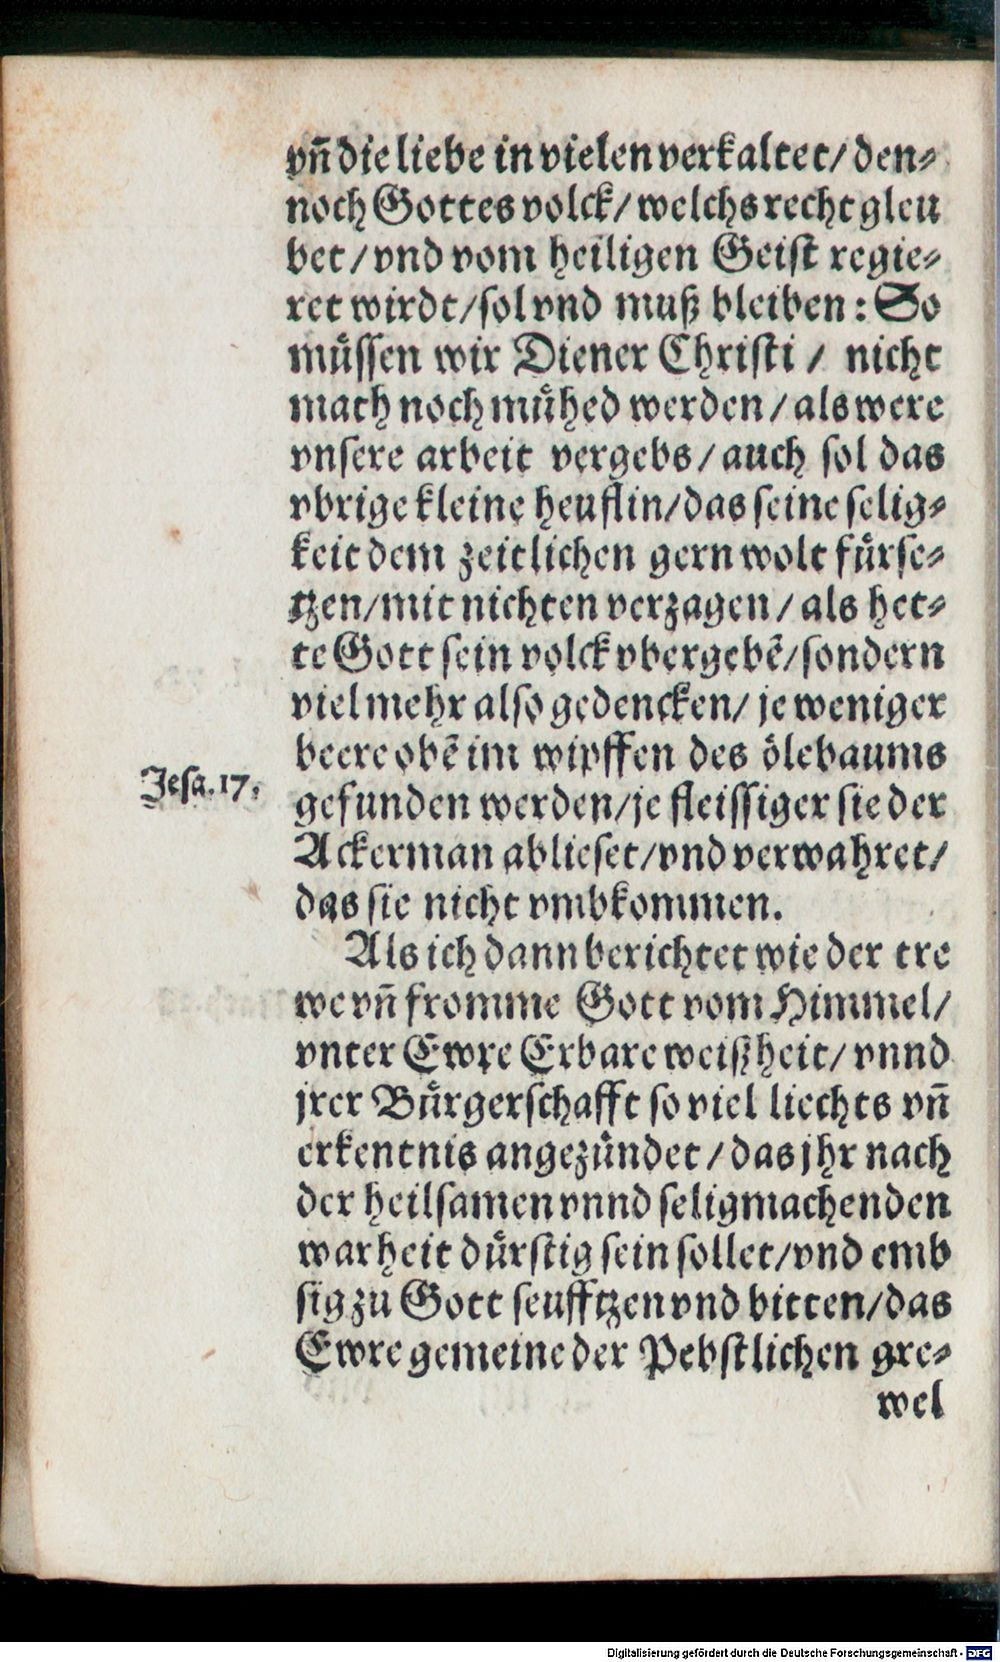 vñ die liebe in vielen verkaltet/ den⸗
noch Gottes volck/ welchs recht gleu
bet/ vnd vom heiligen Geist regie⸗
ret wirdt/ sol vnd muß bleiben: So
müssen wir Diener Christi/ nicht
math noch mühed werden/ als were
vnsere arbeit vergebs/ auch sol das
vbrige kleine heuflin/ das seine selig⸗
keit dem zeitlichen gern wolt fürse⸗
tzen/ mit nichten verzagen/ als het⸗
te Gott sein volck vbergebẽ/ sondern
viel mehr also gedencken/ je weniger
beere obẽ im wipffen des ölebaums
Jesa. 17.
gefunden werden/ je fleissiger sie der
Ackerman ablieset/ vnd verwahret/
das sie nicht vmbkommen.
Als ich dann berichtet wie der tre
we vñ fromme Gott vom Himmel/
vnter Ewre Erbare weißheit/ vnnd
jrer Bürgerschafft so viel liechts vñ
erkentnis angezündet/ das jhr nach
der heilsamen vnnd seligmachenden
warheit dürstig sein sollet/ vnd emb
sig zu Gott seufftzen vnd bitten/ das
Ewre gemeine der Pebstlichen gre⸗
wel
Digitalisierung gefördert durch die Deutsche Forschungsgemeinschaft - DFG